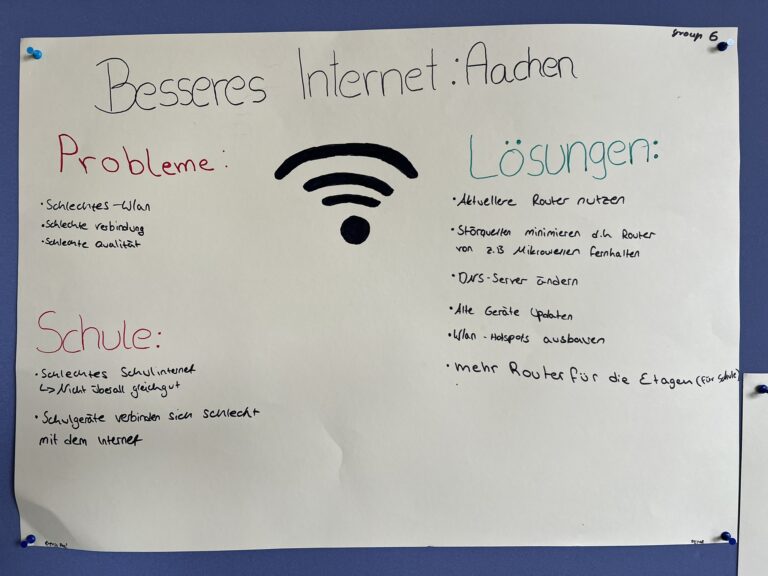 Group 6
Besseres Internet: Aachen
Probleme:
• Schlechtes-Wlan
• Schlechte verbindung
• Schlechte Qualität
Schule:
• Schlechtes Schulinternet
↳ Nicht überall gleichgut
• Schulgeräte verbinden sich schlecht
mit dem Internet
Lösungen:
• Aktuellere Router nutzen
• Störquellen minimieren d.h Router
von z.B Mikrowellen fernhalten
• DNS-Server ändern
• Alte Geräte Updaten
• Wlan-Hotspots ausbauen
• mehr Router für die Etagen (für Schule)